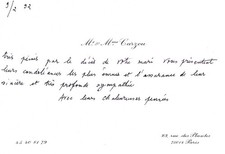 9/2 92
Mr et Mme Carzou
très peinés par le décès de votre mari vous présentent
leurs condoléances les plus émues et l'assurance de leur
sincère et très profonde sympathie
Avec leurs chaleureuses pensées
75014 Paris